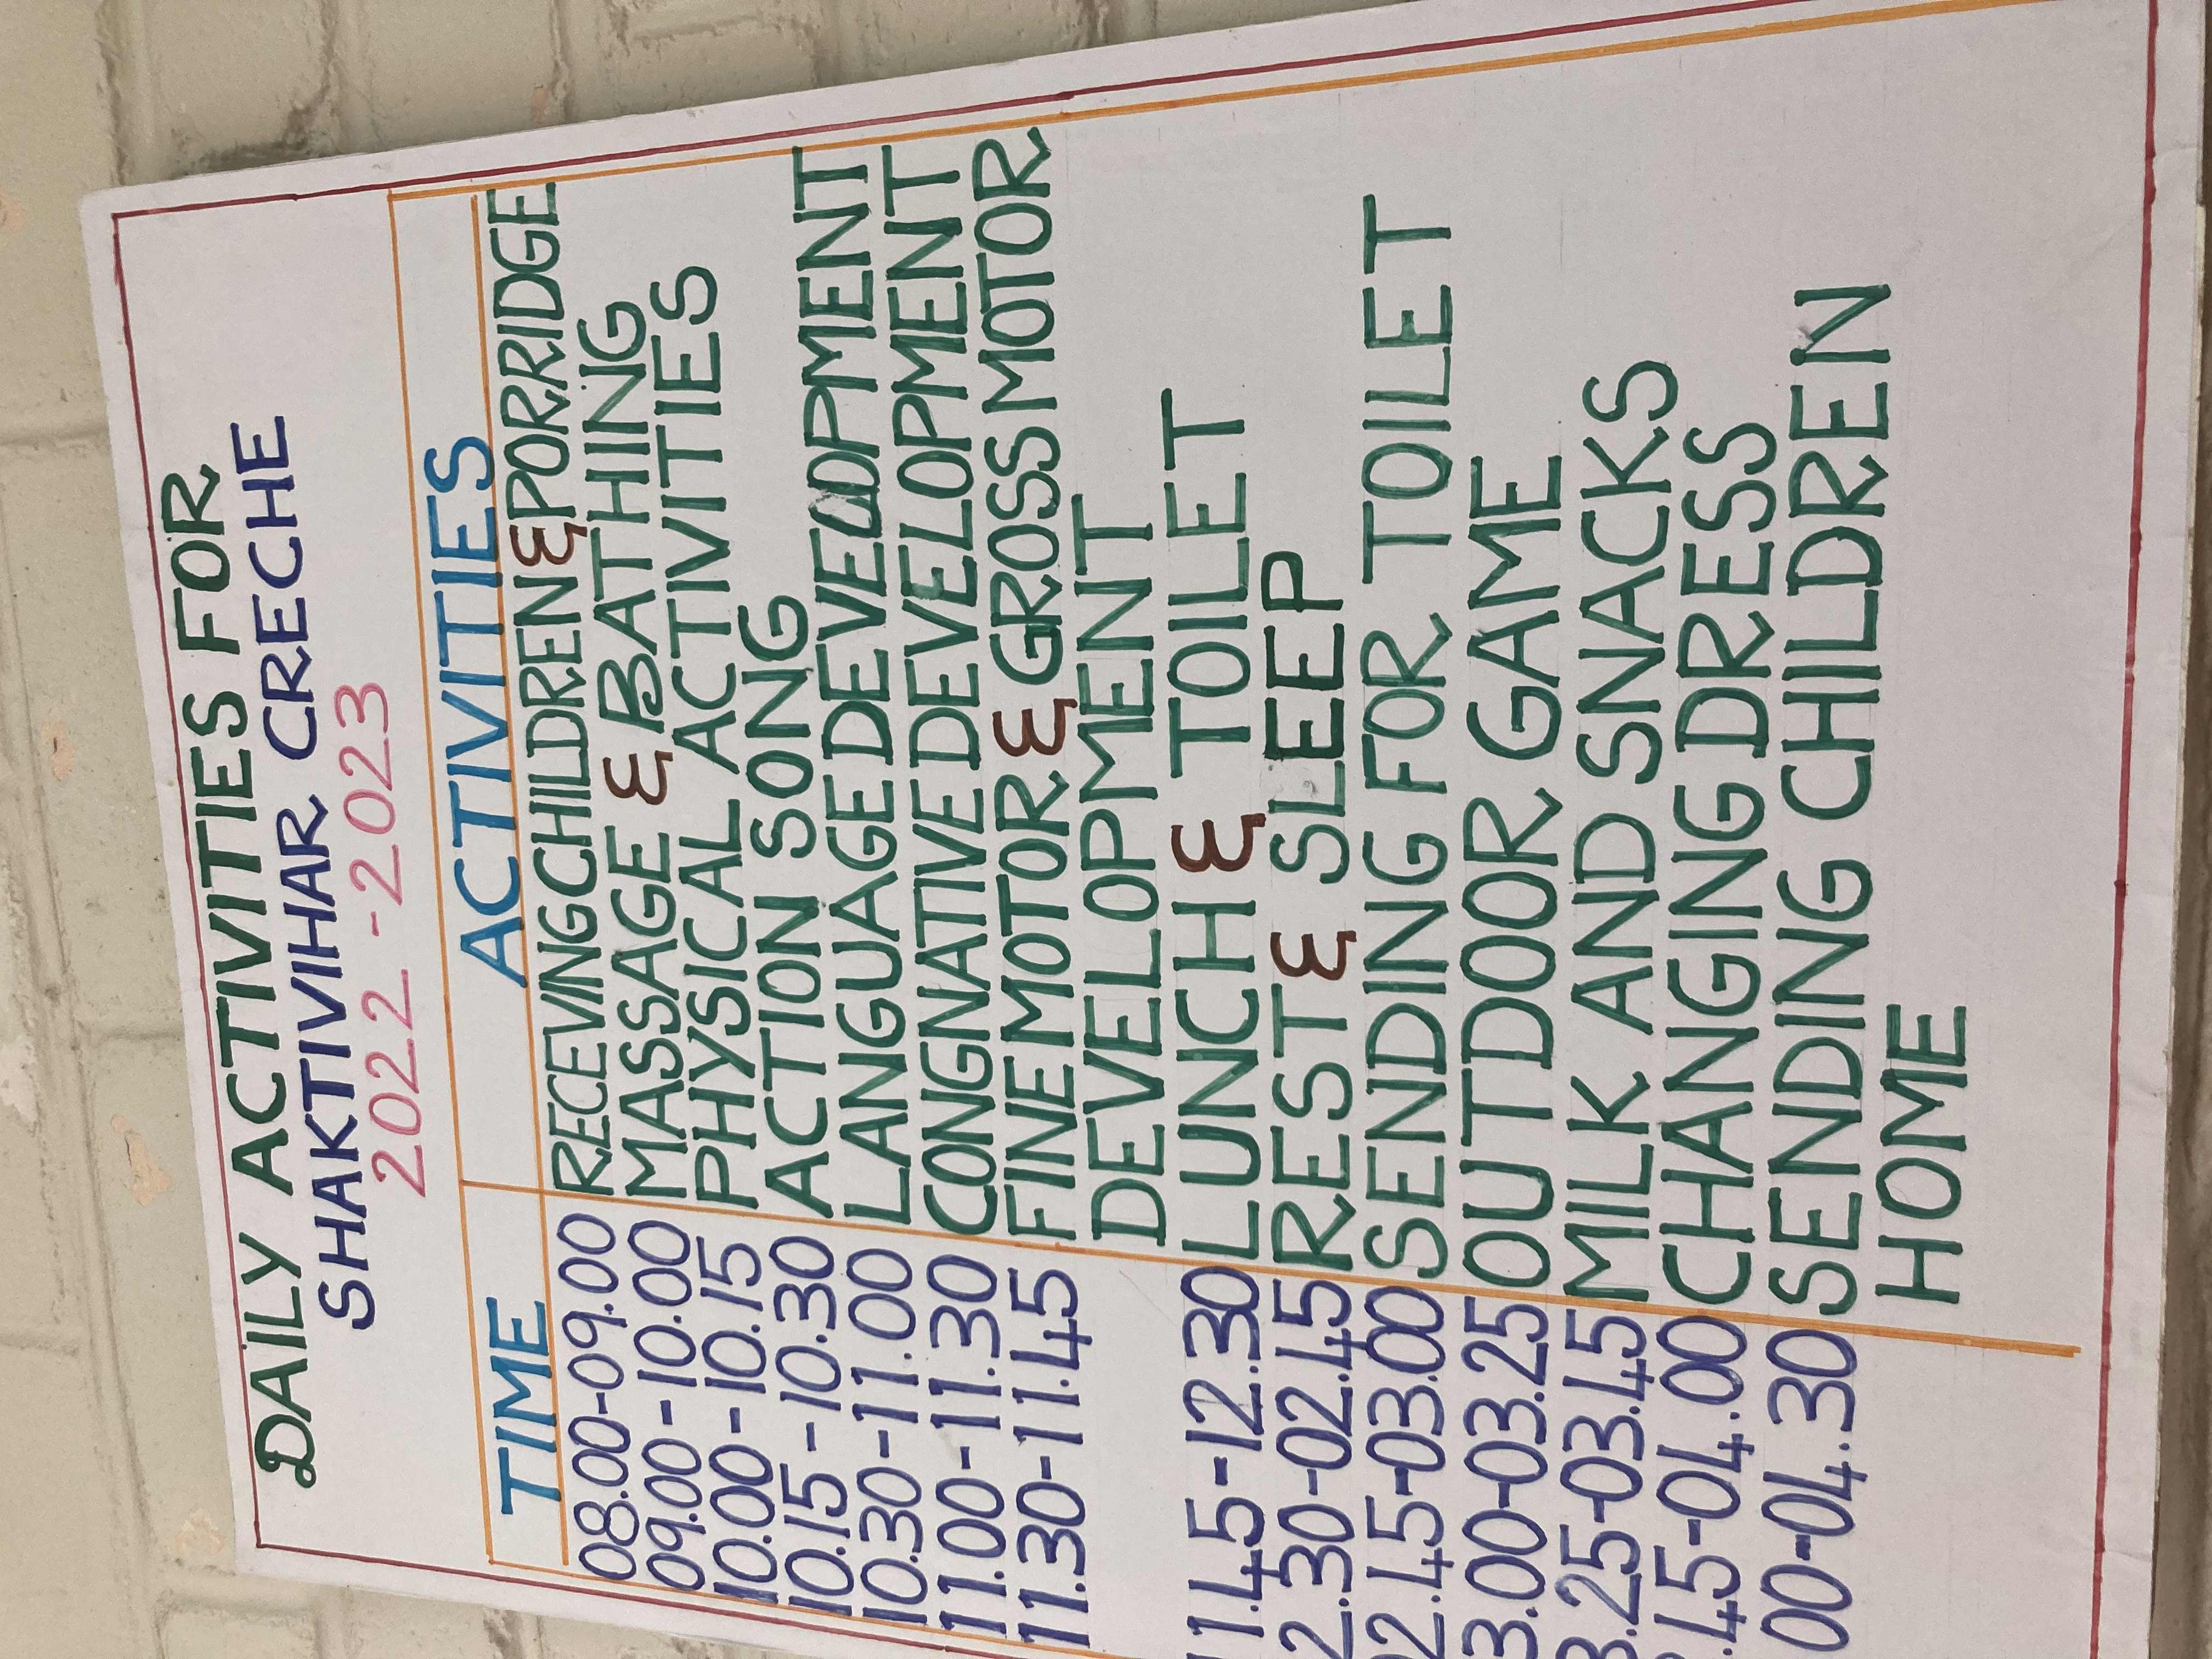 DAILY ACTIVITIES FOR
SHAKTIVIHAR CRECHE
2022-2023
TIME ACTIVITIES
08.00-09.00 RECEVING CHILDREN & PORRIDGE
09.00-10.00 MASSAGE & BATHING
10.00-10.15 PHYSICAL ACTIVITIES
10.15-10.30 ACTION SONG
10.30-11.00 LANGUAGE DEVELOPMENT
11.00-11.30 CONGNATIVE DEVELOPMENT
11.30-11.45 FINE MOTOR & GROSS MOTOR
DEVELOPMENT
11.45-12.30 LUNCH & TOILET
2.30-02.45 REST & SLEEP
02.45-03.00 SENDING FOR TOILET
3.00-03.25 OUTDOOR GAME
3.25-03.45 MILK AND SNACKS
.45-04.00 CHANGING DRESS
00-04.30 SENDING CHILDREN
HOME